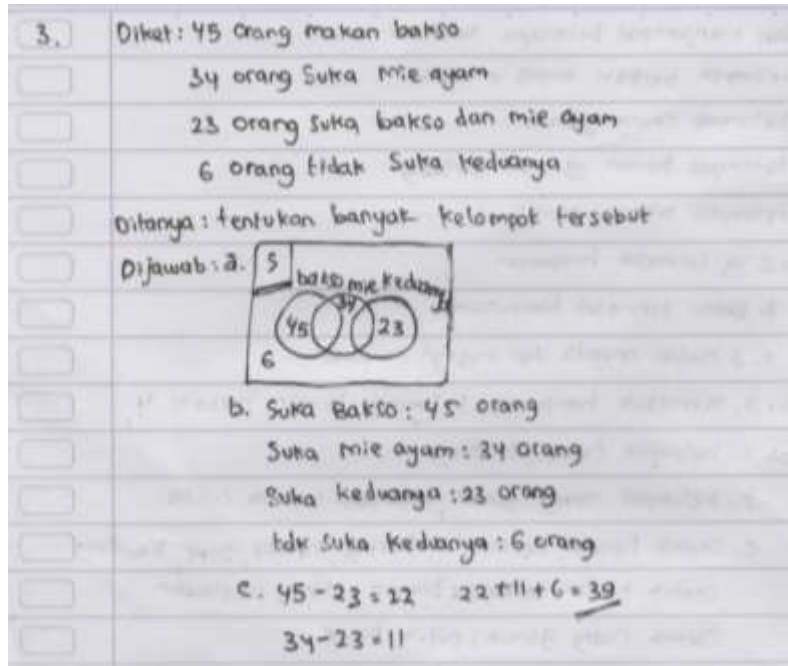 3. Diket : 45 orang makan bakso
34 orang suka mie ayam
23 orang suka bakso dan mie ayam
6 orang tidak suka keduanya
Ditanya : tentukan banyak kelompok tersebut
Dijawab : a. S
bakso mie keduanya
34
45 23
6
b. Suka Bakso : 45 orang
Suka mie ayam : 34 orang
Suka keduanya : 23 orang
tdk suka keduanya : 6 orang
c. 45 - 23 = 22 22 + 11 + 6 = 39
34 - 23 = 11